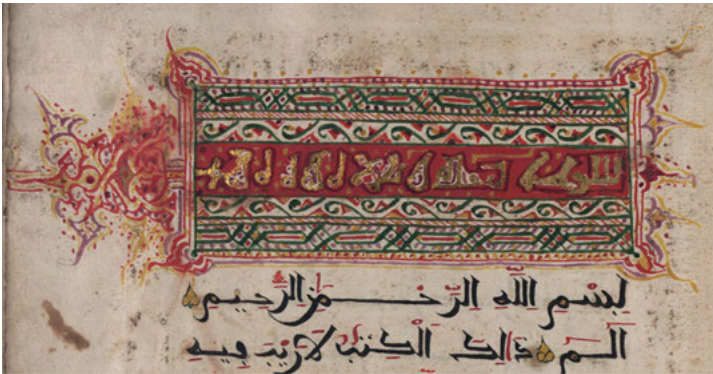 سورة
بسم الله الرحمن الرحيم
الم ذلك الكتب لا ريب فيه